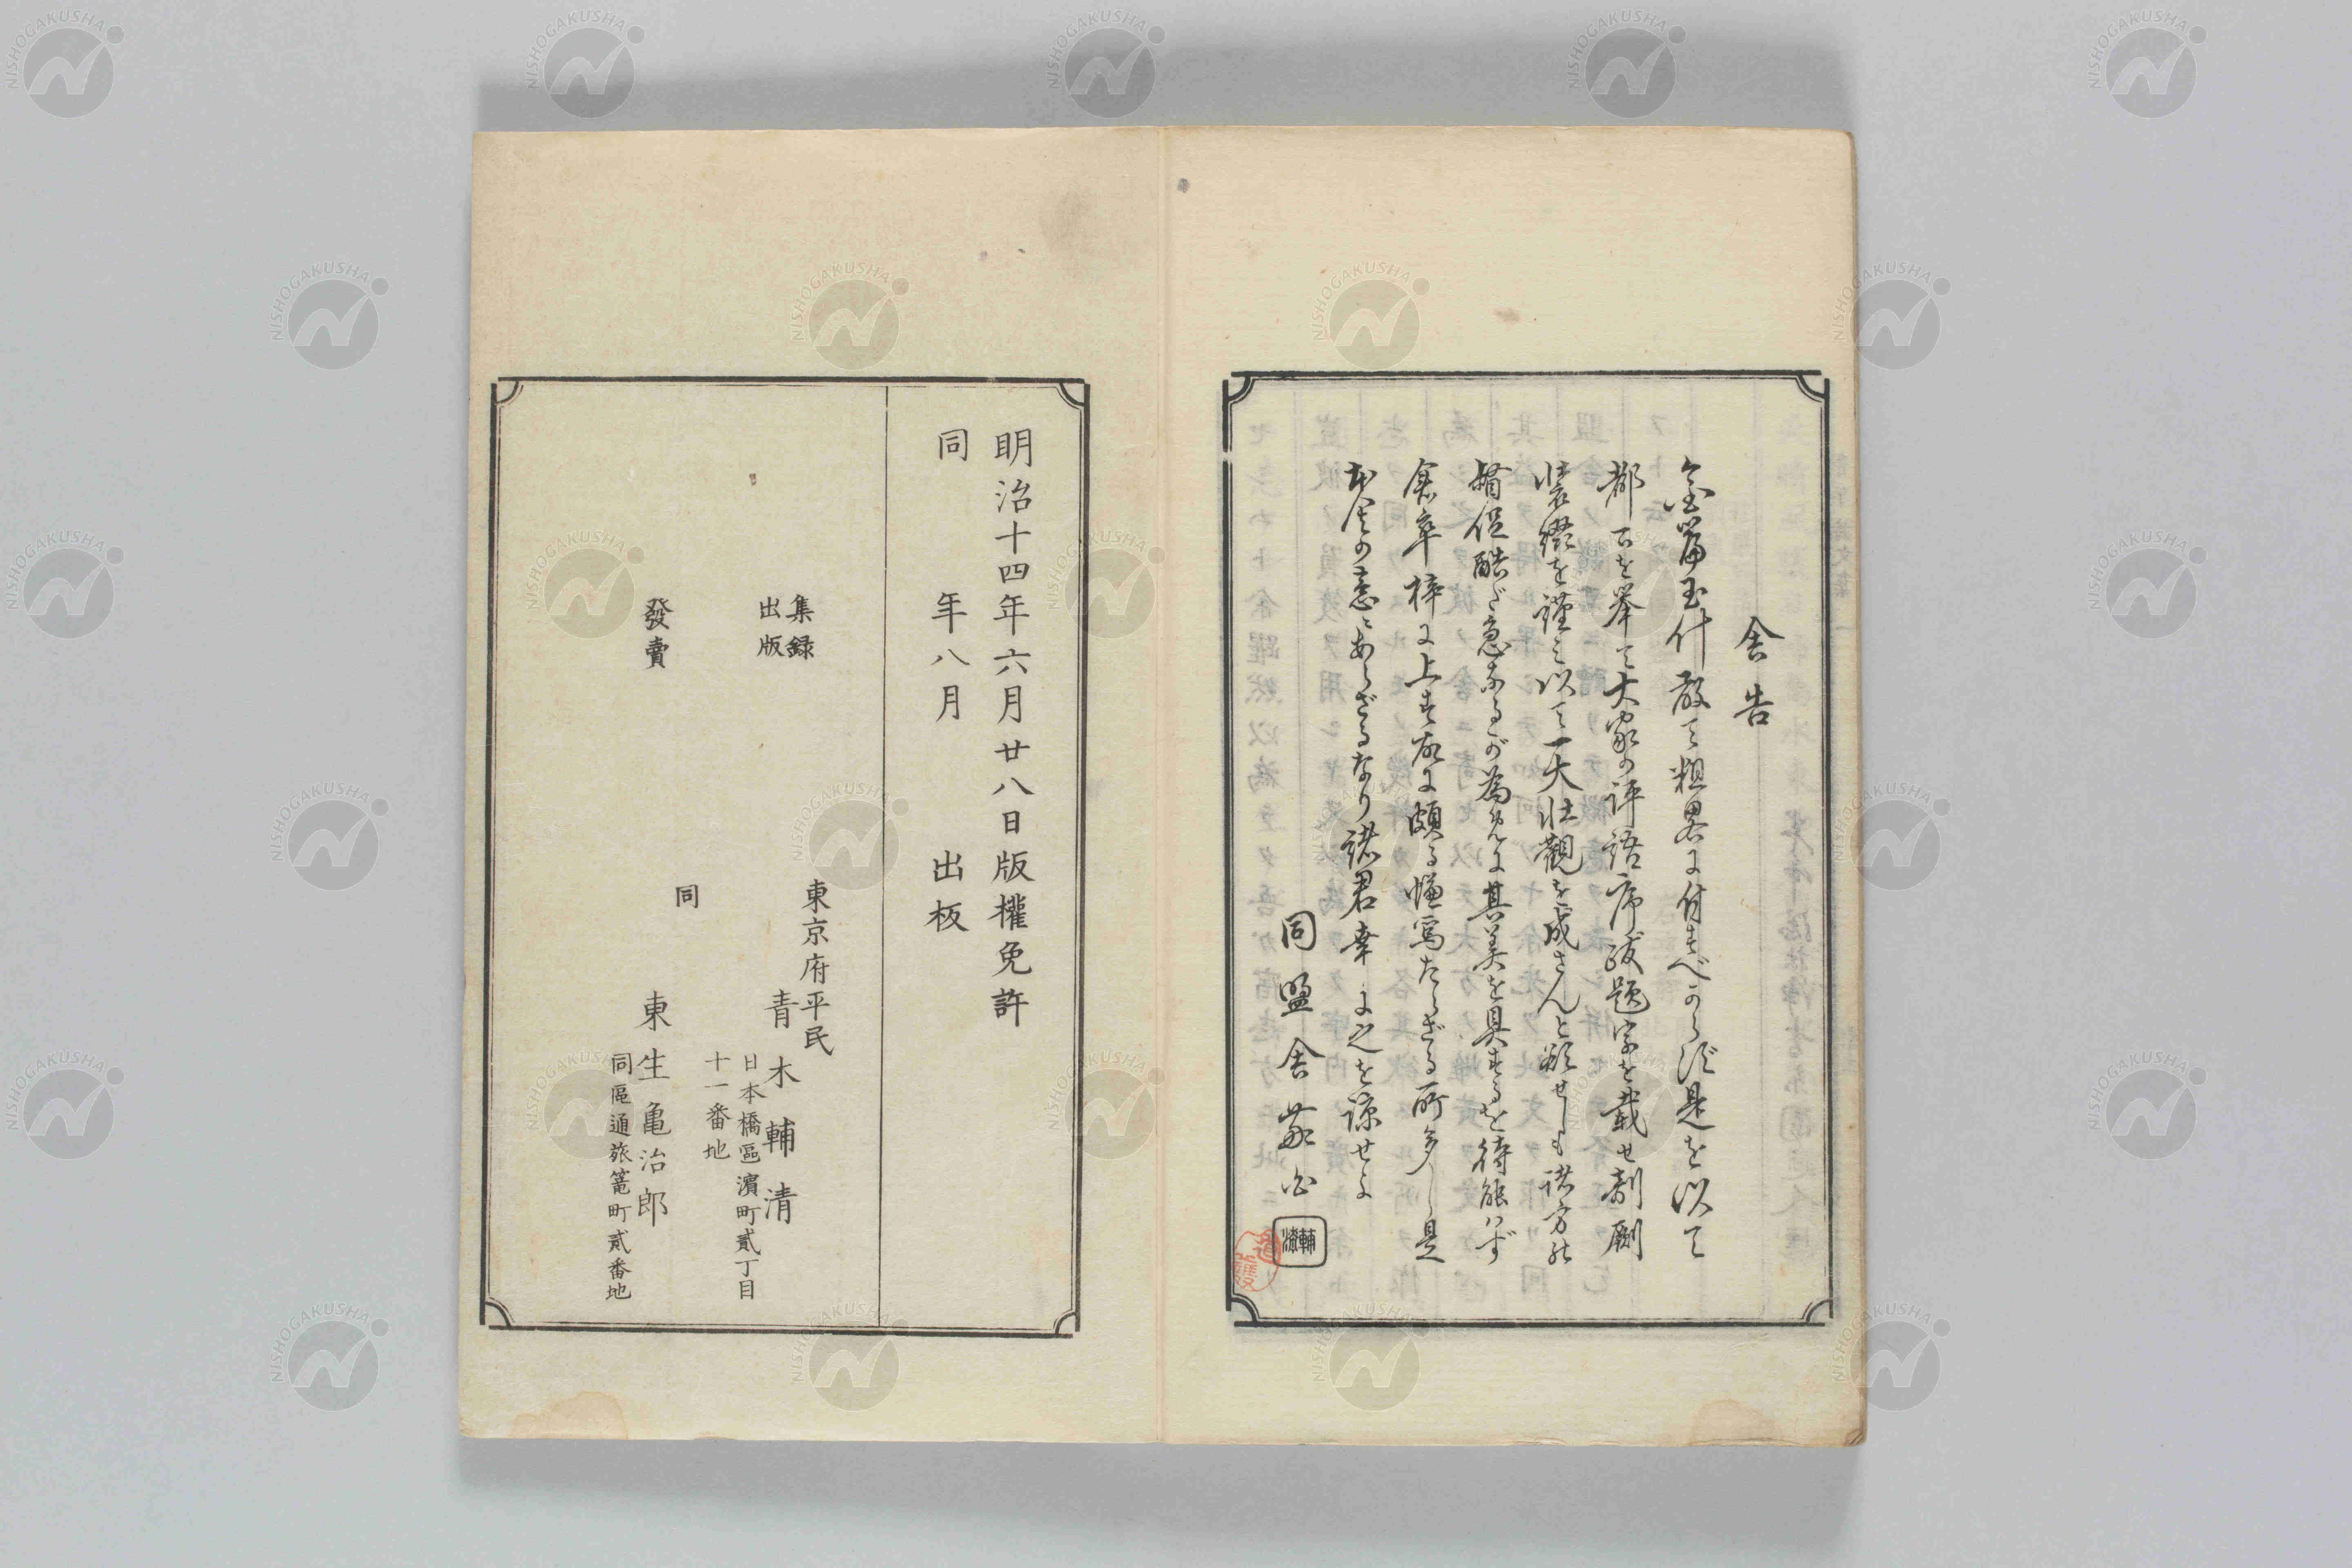 舎告
金篇玉什敢て粗畧に付すべからず是を以て
都下を挙て大家の評語序跋題字を載せ剞劂
装綴を謹み以て一大壮觀を成さんと欲せしも諸方の
督促酷だ急なるが為めに其美を具するを待能はず
倉卒梓に上す故に頗る慊焉たらざる所多し是
本舎の意にあらざるなり諸君幸に之を諒せよ
同盟舎敬白
明治十四年六月廿八日版權免許
同年八月出板
集録
出版
東京府平民
青木輔清
日本橋區濱町貳丁目
十一番地
發賣
同
東生亀治郎
同區通旅篭町貳番地
NISHOGAKUSHA